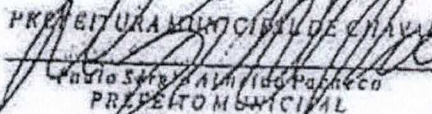 PREFEITURA MUNICIPAL DE CHAVAL
Paulo Sérgio Almeida Pacheco
PREFEITO MUNICIPAL